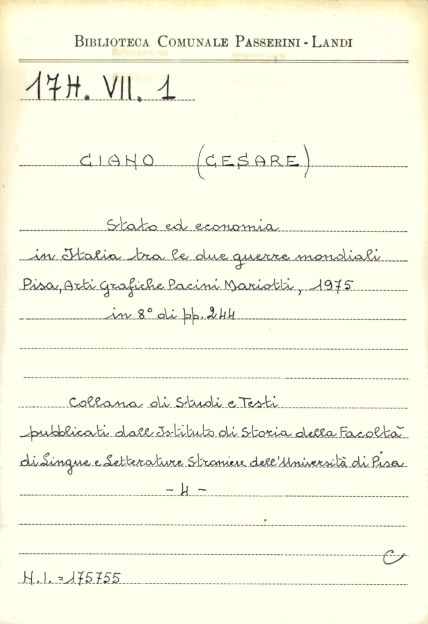 BIBLIOTECA COMUNALE PASSERINI - LANDI
17H. VII. 1
CIANO (CESARE)
Stato ed economia
in Italia tra le due guerre mondiali
Pisa, Arti Grafiche Pacini Mariotti, 1975
in 8° di pp. 244
Collana di Studi e Testi
pubblicati dall'Istituto di Storia della Facoltà
di Lingue e Letterature Straniere dell'Università di Pisa
- 4 -
C
N.I. = 175755